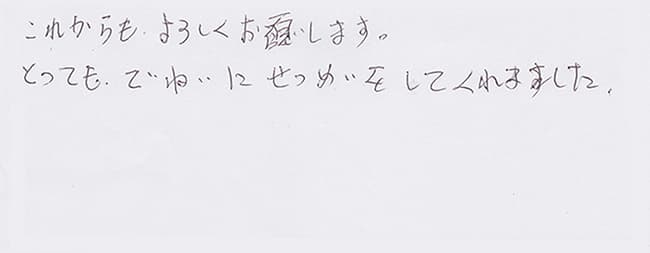 これからも よろしくお願いします。
とっても、ていねいに せつめいを してくれました。